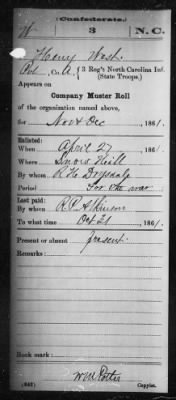 Confederate.
3 N.C.
Henry West
Pvt, Co. A, { 3 Reg't North Carolina Inf.
(State Troops.)
Appears on
Company Muster Roll
of the organization named above,
for Nov & Dec, 1861.
Enlisted:
When April 27, 1861.
Where Snow Hill
By whom R H Drysdale
Period For the war
Last paid:
By whom R. P. Atkinson
To what time Oct 31, 1861.
Present or absent present
Remarks:
Book mark:
W M Potter
(642) Copyist.